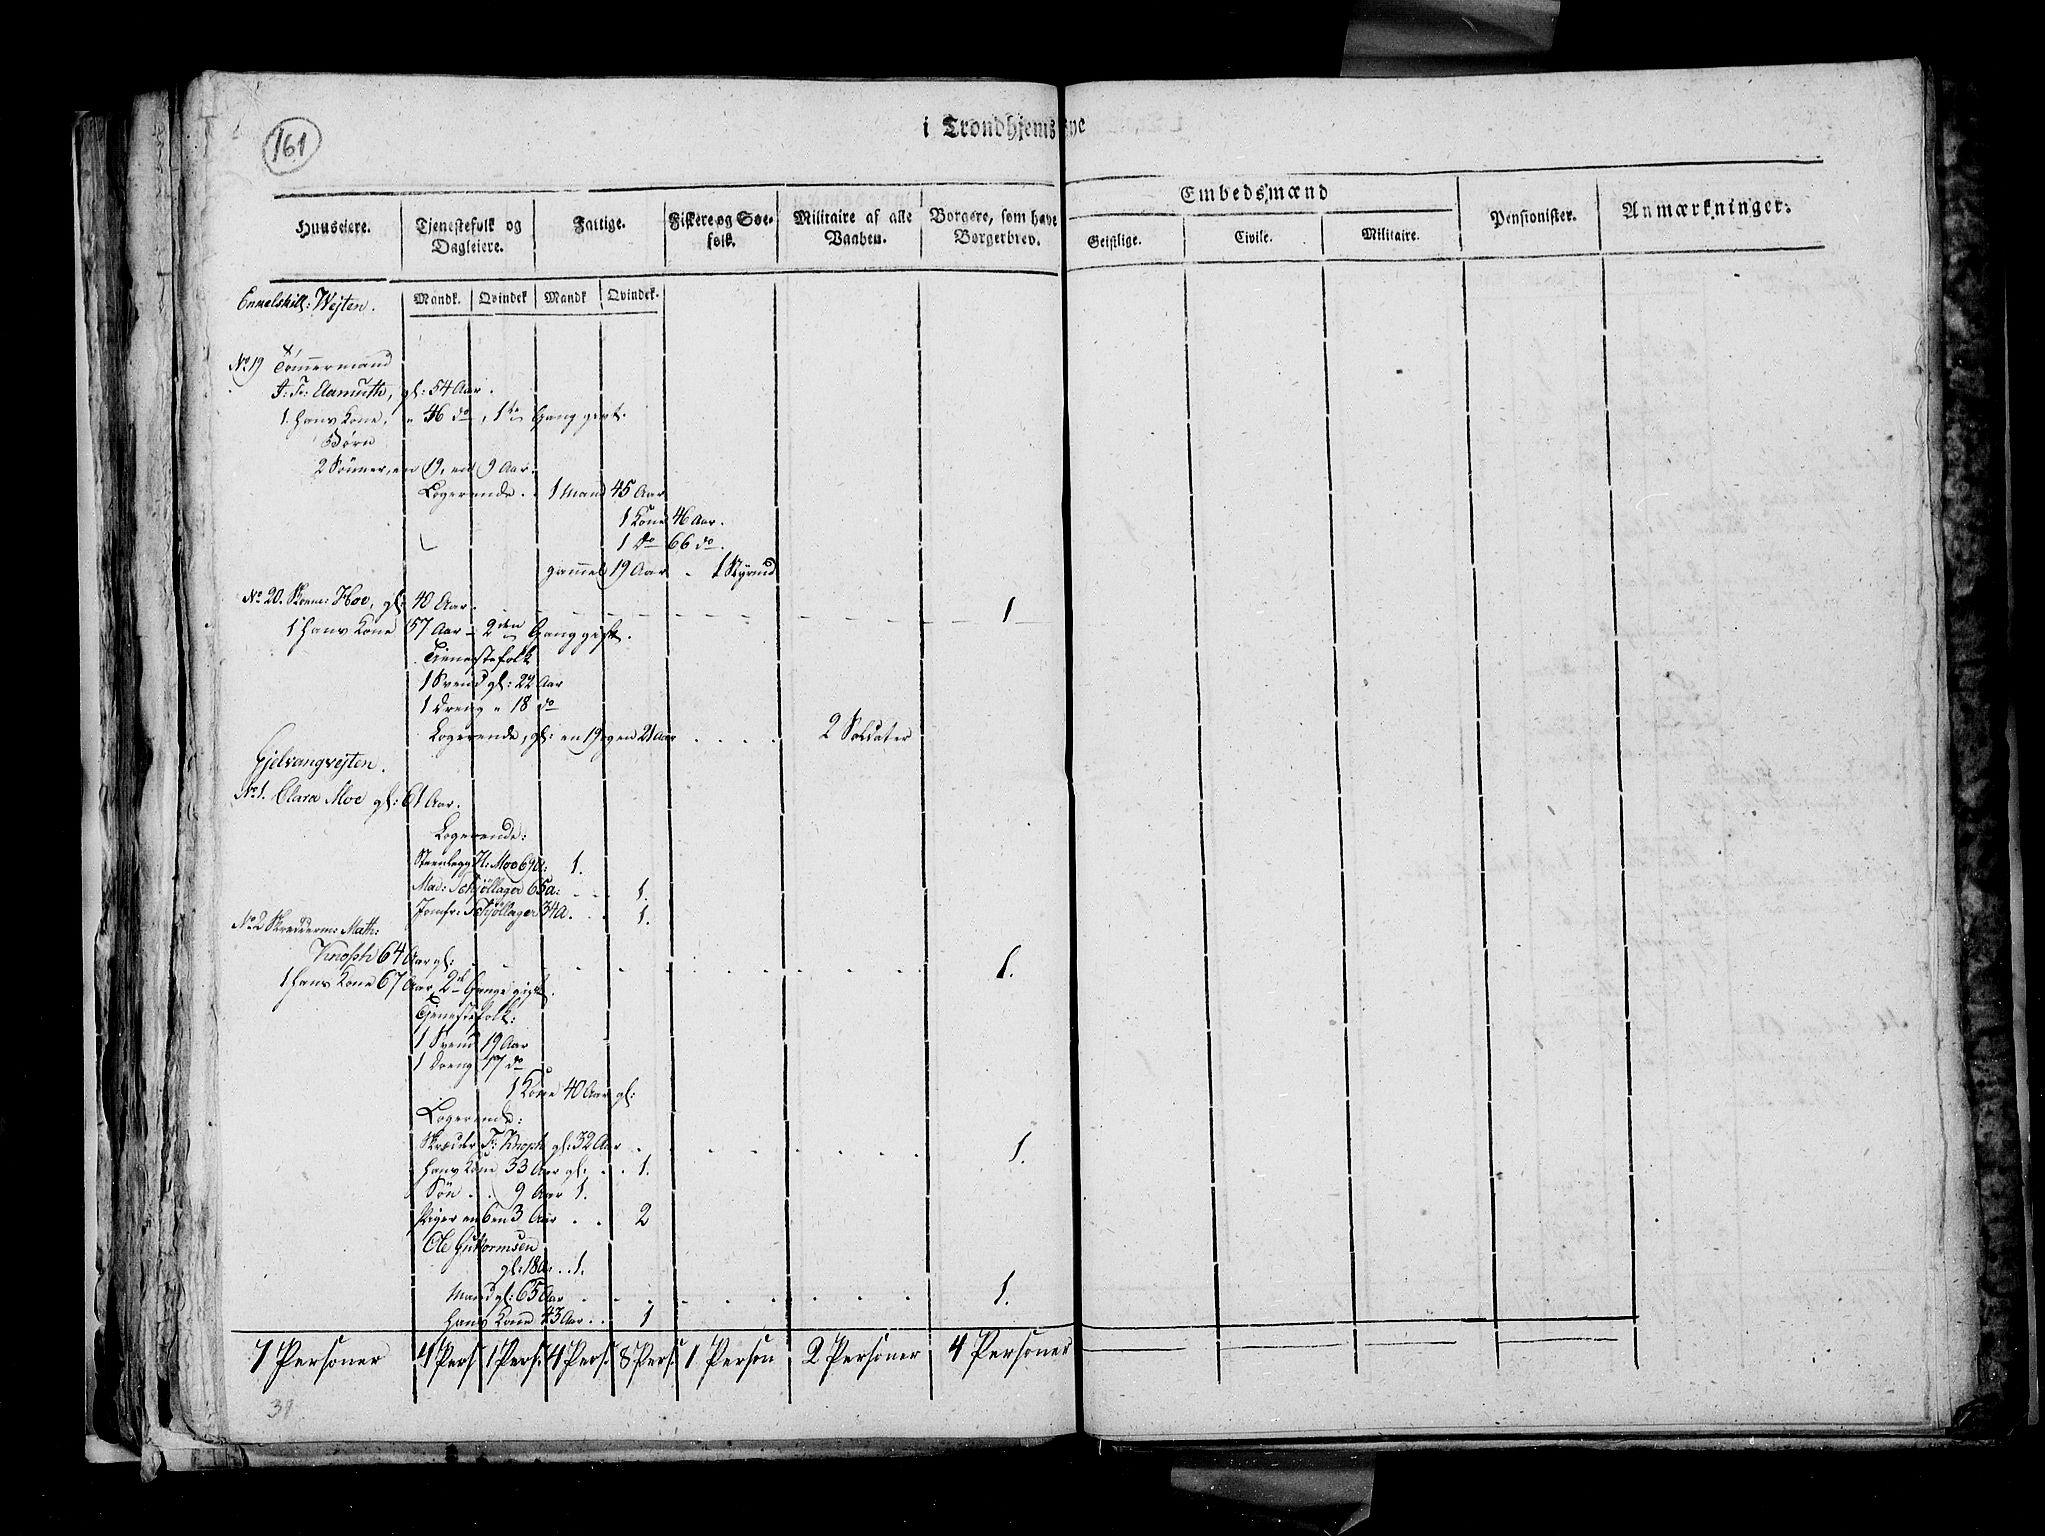 161
i Trondhjems Bye
Embedsmænd
Huuseiere. Tjenestefolk og Dagleiere. Fattige. Fiskere og Søefolk. Militaire af alle Vaaben. Borgere, som have Borgerbrev. Geistlige. Civile. Militaire. Pensionister. Anmærkninger.
Mandk. Qvindek. Mandk. Qvindek.
Enkelskill: Wejten.
No 19 Tømmermand
gl: 54 Aar.
1. Hans Kone, " 46 do, 1te Gang gift.
Børn
2 Sønner, en 19, en 9 Aar.
Logerende . . 1 Mand 45 Aar
1 Kone 46 Aar.
1 do 66 do.
gammel 19 Aar . 1
No 20. Skoem: Hoe, gl: 40 Aar. 1
1 Hans Kone 57 Aar - 2den Gang gift.
Tienestefolk
1 Svend gl: 22 Aar
1 Dreng " 18 do
Logerende, gl: en 19 og en 21 Aar . . . . 2 Soldater
Gjelvangvejten.
No 1. Clara Moe gl: 61 Aar.
Logerende:
H: Moe 69 a: 1.
Mad: Schjøllager 65 a: . . 1.
Jomfr: Schjøllager 34 a. . . 1.
No 2 Skrædderm: Math:
Knoph 64 Aar gl: 1.
1 Hans Kone 67 Aar, 2de Gange gift.
Tjenestefolk:
1 Svend 19 Aar
1 Dreng 17 do
1 Kone 40 Aar gl:
Logerende:
Skræder F: Knoph gl: 32 Aar 1.
Hans Kone 33 Aar gl: . . 1.
Søn . . 9 Aar 1.
Piger en 6 en 3 Aar . . 2
Ole Guttormsen
gl: 18 a: . . 1.
Mand gl: 65 Aar 1.
Hans Kone 43 Aar . . 1
7 Personer 4 Pers 1 Pers: 4 Pers: 8 Pers: 1 Person 2 Personer 4 Personer
31